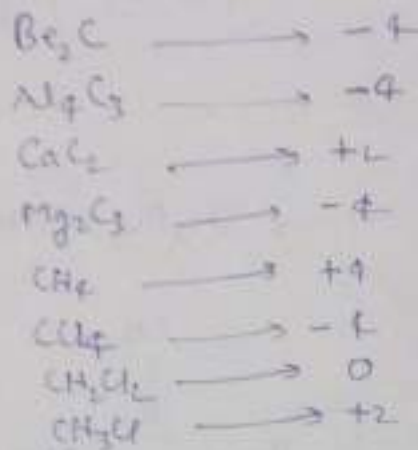 Be₂C → -4
Al₄C₃ → -4
CaC₂ → +2
Mg₂C₃ → -4
CH₄ → +4
CCl₄ → -4
CH₂Cl₂ → 0
CH₃Cl → +2